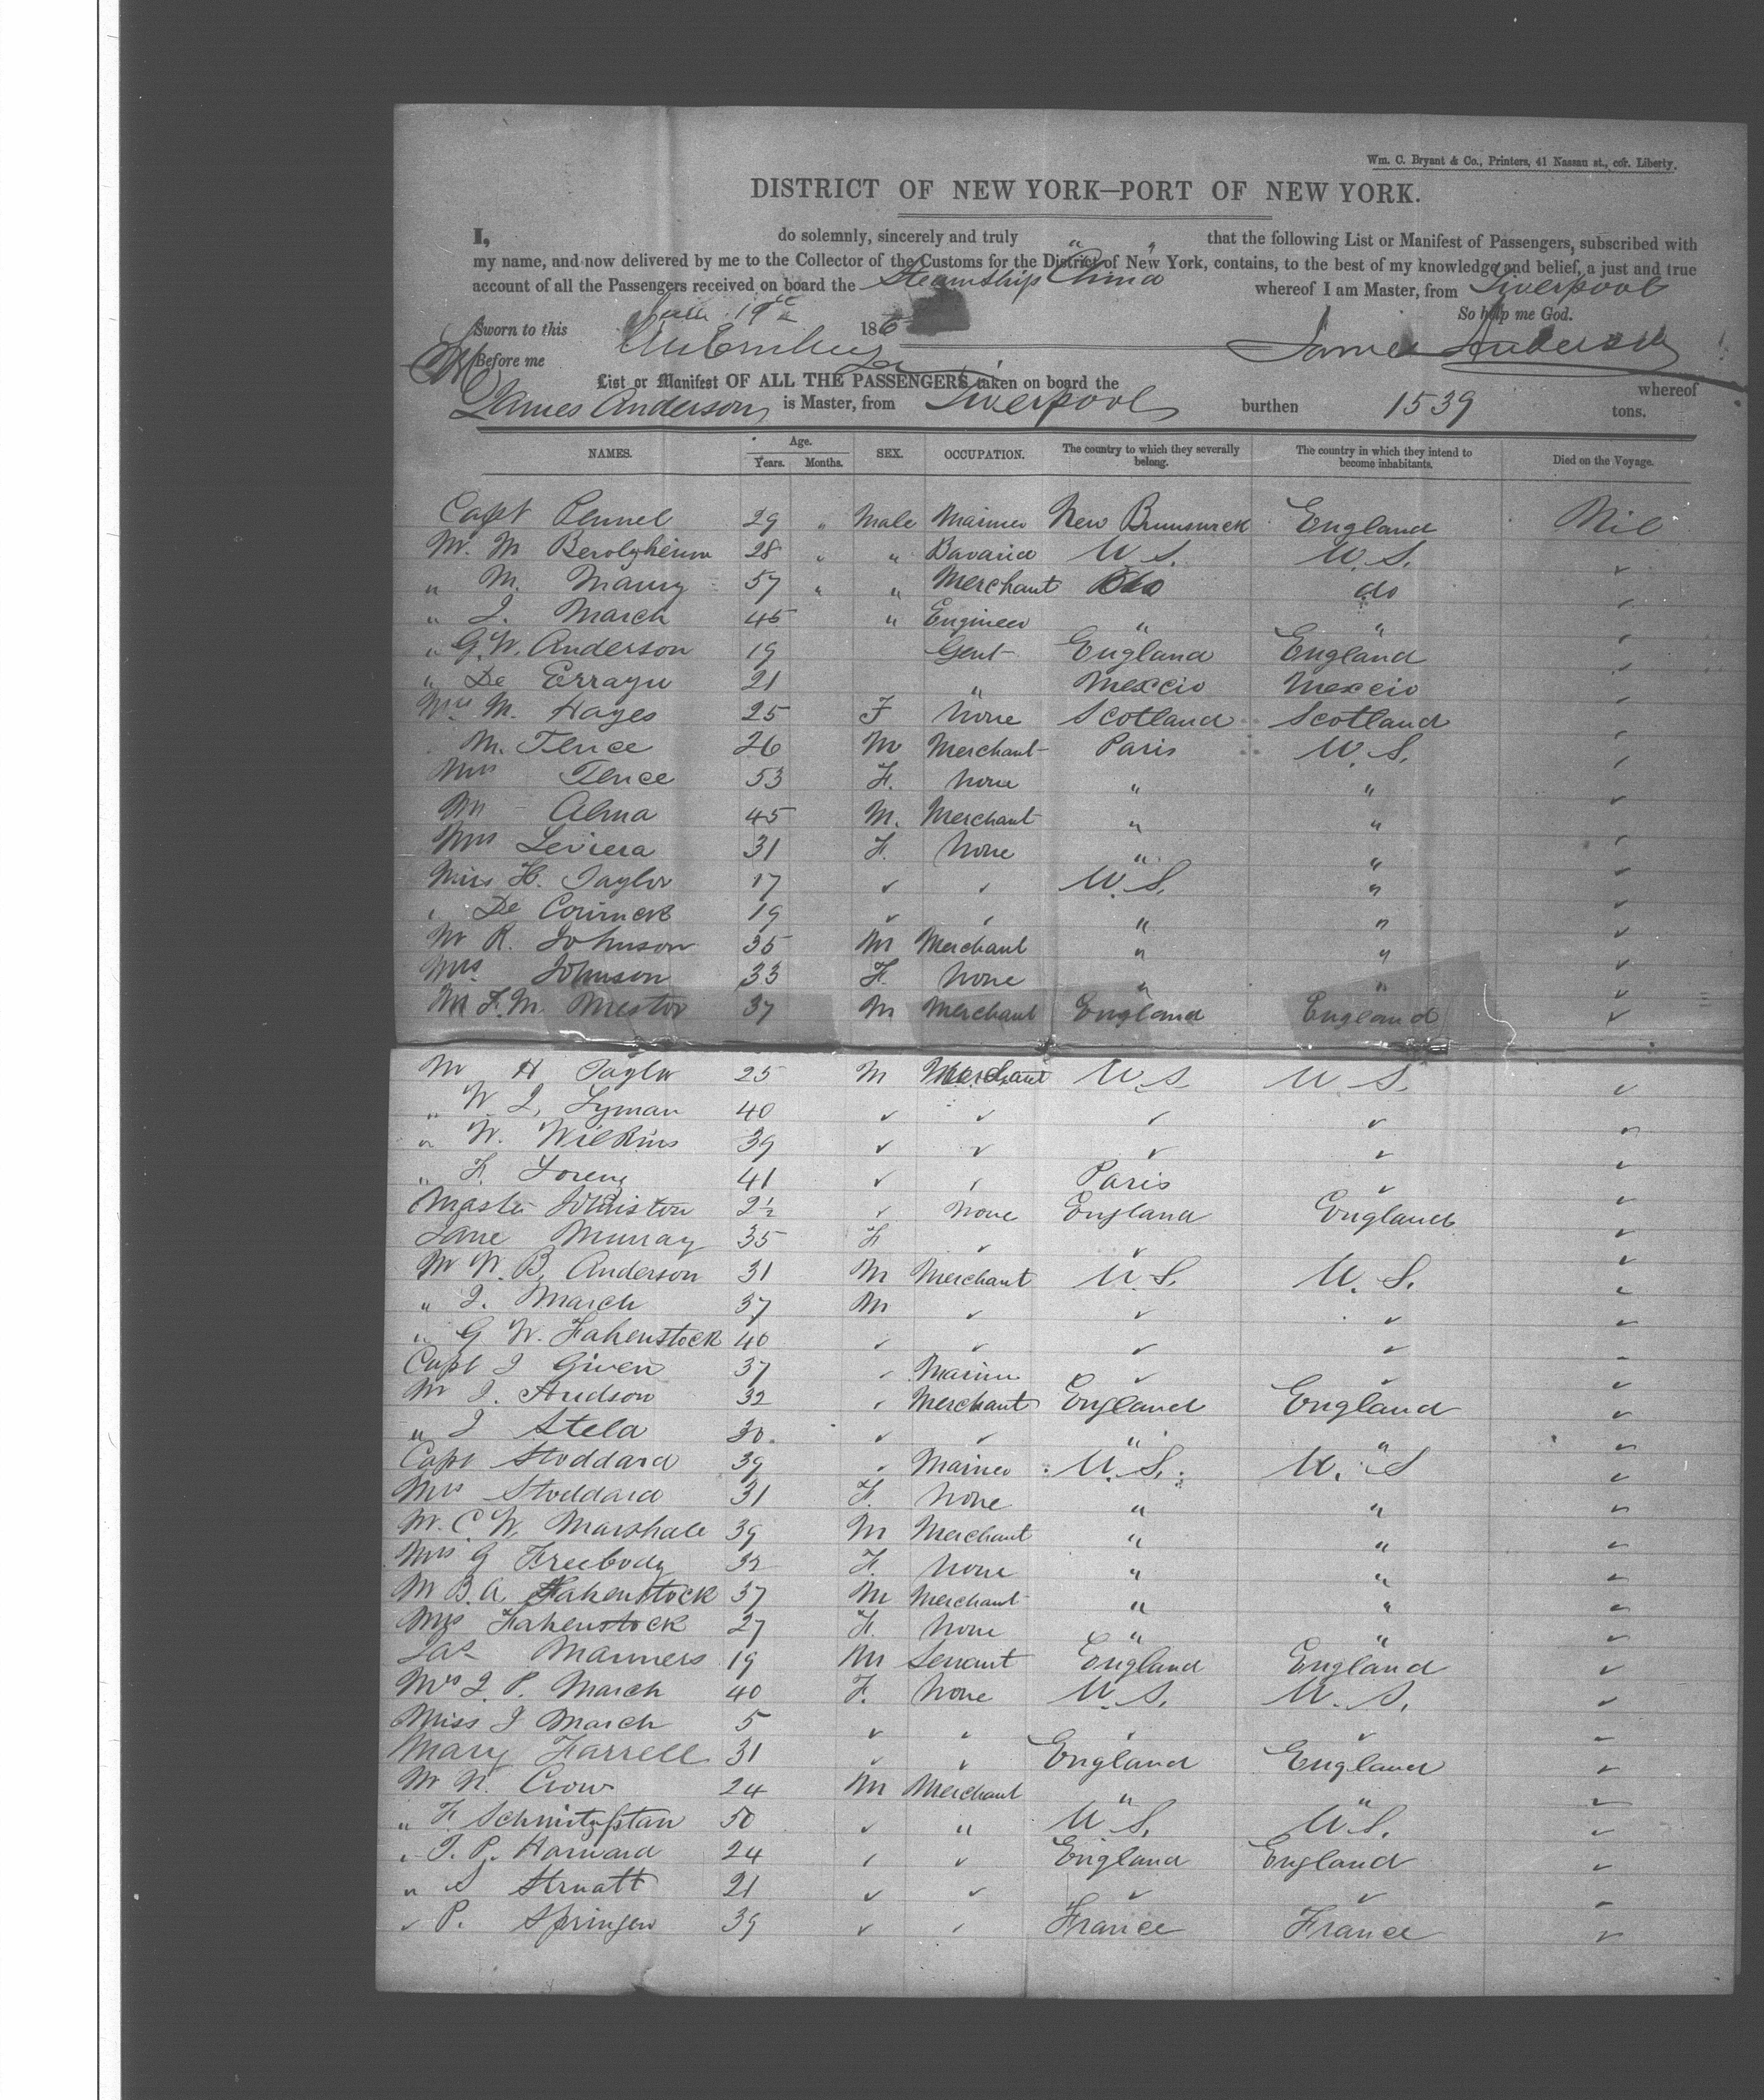 Wm. C. Bryant & Co., Printers, 41 Nassau st., cor. Liberty.
DISTRICT OF NEW YORK—PORT OF NEW YORK.
I, do solemnly, sincerely and truly " " that the following List or Manifest of Passengers, subscribed with
my name, and now delivered by me to the Collector of the Customs for the District of New York, contains, to the best of my knowledge and belief, a just and true
account of all the Passengers received on board the Steamship China whereof I am Master, from Liverpool
So help me God.
Sworn to this 19 186
Before me James Anderson
List or Manifest OF ALL THE PASSENGERS taken on board the whereof
James Anderson is Master, from Liverpool burthen 1539 tons.
NAMES. Age. Years. Months. SEX. OCCUPATION. The country to which they severally belong. The country in which they intend to become inhabitants. Died on the Voyage.
Capt Pennel 29 " Male Mariner New Brunswick England Nil
Mr. M Berolzheim 28 " " Bavaria U S. U. S. ✓
" M. Maury 57 " " Merchant do do ✓
" J. March 45 " Engineer " " ✓
" G. W. Anderson 19 Gent England England ✓
" De Errazu 21 " Mexcio Mexcio ✓
Mrs M. Hayes 25 F None Scotland Scotland ✓
M. Tence 26 M Merchant Paris U. S. ✓
Mrs Tence 53 F. None " " ✓
Mr Alma 45 M. Merchant " " ✓
Mrs Leviera 31 F. None " " ✓
Miss H. Taylor 17 ✓ ✓ U. S. " ✓
" De 19 ✓ ✓ " " ✓
Mr R. Johnson 35 M Merchant " " ✓
Mrs Johnson 33 F. None " " ✓
Mr F. M. Mestor 37 M Merchant England England ✓
Mr H Taylor 25 M Merchant U S U S. ✓
" W. J. Lyman 40 ✓ ✓ ✓ ✓ ✓
" W. Wilkins 39 ✓ ✓ ✓ ✓ ✓
" F. 41 ✓ ✓ Paris ✓ ✓
Master Johnston 2½ ✓ None England England ✓
Jane Murray 35 F ✓ ✓ ✓
Mr N. B. Anderson 31 M Merchant U. S. U. S. ✓
" J. March 37 M ✓ ✓ ✓ ✓
" G W. Fahenstock 40 ✓ ✓ ✓ ✓ ✓
Capt J Given 37 ✓ Marine ✓ ✓ ✓
Mr J. Hudson 32 ✓ Merchant England England ✓
" J Stela 30. ✓ ✓ " " ✓
Capt Stoddard 39 ✓ Mariner U. S. U. S ✓
Mrs Stoddard 31 F. None " " ✓
Mr. C. W. Marshall 39 M Merchant " " ✓
Mrs G Freebody 32 F. None " " ✓
Mr B. A. Fahenstock 37 M Merchant " " ✓
Mrs Fahenstock 27 F. None " " ✓
Jas Manners 19 M Servant England England ✓
Mrs J. P. March 40 F. None U. S. U. S. ✓
Miss J March 5 ✓ ✓ ✓ ✓ ✓
Mary Farrell 31 ✓ ✓ England England ✓
Mr N. Crow 24 M Merchant " " ✓
" F. 50 ✓ " U. S. U. S. ✓
" T. P. Harward 24 ✓ ✓ England England ✓
" S Struatt 21 ✓ ✓ ✓ ✓ ✓
✓ P. Springer 39 ✓ ✓ France France ✓